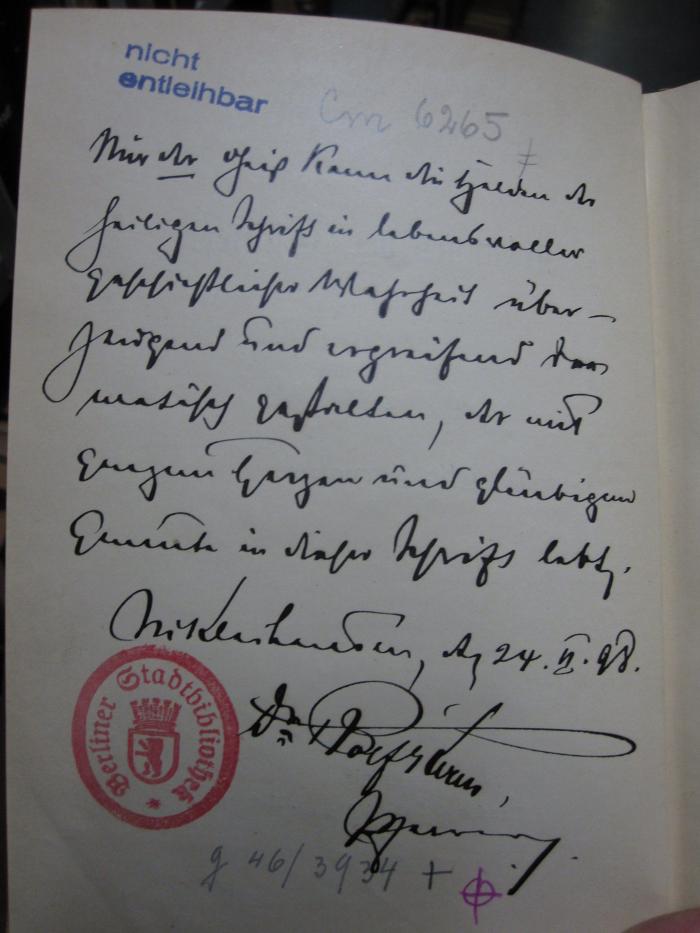 nicht
entleihbar
Cm 6265
Nur der Geist kann die Helden der
heiligen Schrift in lebensvoller
geschichtlicher Wahrheit über-
zeugend und ergreifend dra
matisch gestalten, der mit
ganzem Herzen und gläubigem
Gemüte in dieser Schrift lebt.
den 24. II. 98.
Dr.
Berliner Stadtbibliothek
g 46/3934 +